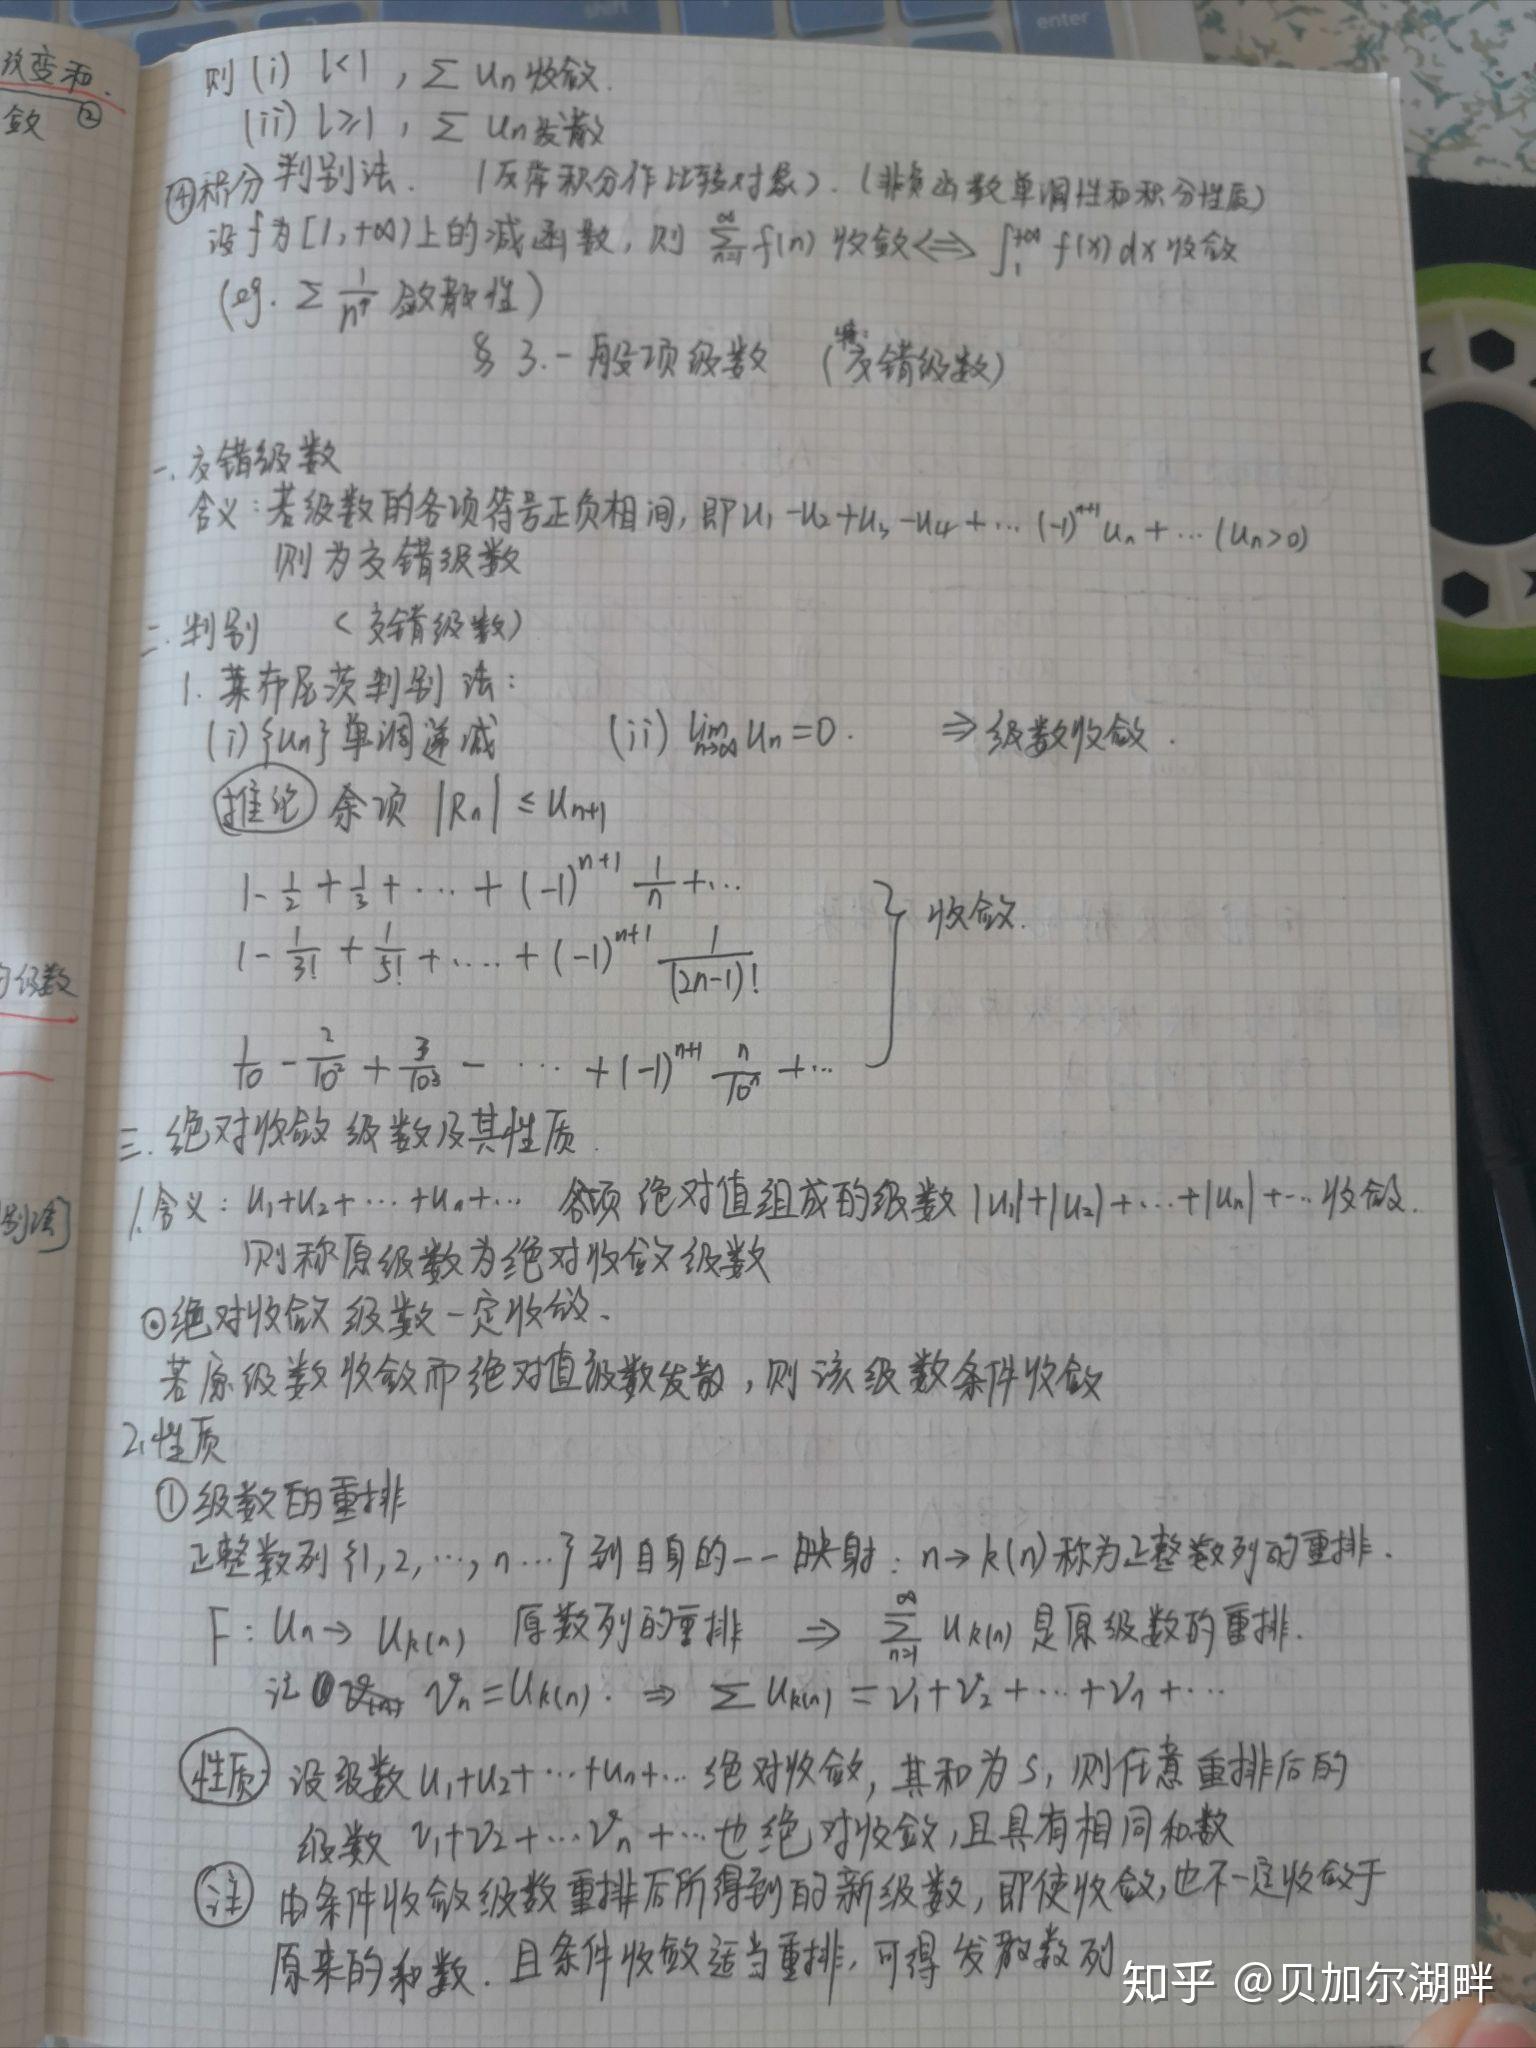 shift
enter
改变和.
敛 ②
的级数
别法]
则 (i) l<1 , Σ un 收敛.
(ii) l≥1 , Σ un 发散
④积分判别法. (反常积分作比较对象). (非负函数单调性和积分性质)
设f为[1,+∞)上的减函数, 则 ∞Σn=1 f(n) 收敛⇔ ∫₁^{+∞} f(x)dx收敛
(eg. Σ 1/n^p 敛散性)
§ 3.一般项级数 (特:交错级数)
一.交错级数
含义:若级数的各项符号正负相间,即u₁-u₂+u₃-u₄+…(-1)^{n+1}un+…(un>0)
则为交错级数
二.判别 (交错级数)
1. 莱布尼茨判别法:
(i) {un}单调递减 (ii) lim n→∞ un=0. ⇒级数收敛.
推论 余项 |Rn| ≤ u_{n+1}
1-1/2+1/3+…+(-1)^{n+1} 1/n+…
收敛.
1-1/3!+1/5!+….+(-1)^{n+1} 1/(2n-1)!
1/10-2/10²+3/10³-…+(-1)^{n+1} n/10^n+…
三.绝对收敛级数及其性质.
1.含义: u₁+u₂+…+un+… 各项绝对值组成的级数|u₁|+|u₂|+…+|un|+…收敛.
则称原级数为绝对收敛级数
⊙绝对收敛级数一定收敛.
若原级数收敛而绝对值级数发散,则该级数条件收敛
2.性质
①级数的重排
正整数列{1,2,…,n…}到自身的一一映射: n→k(n)称为正整数列的重排.
F: un→u_{k(n)} 原数列的重排 ⇒ ∞Σn=1 u_{k(n)}是原级数的重排.
记 vn=u_{k(n)}. ⇒ Σu_{k(n)}=v₁+v₂+…+vn+…
性质 设级数u₁+u₂+…+un+…绝对收敛,其和为S,则任意重排后的
级数 v₁+v₂+…vn+…也绝对收敛,且具有相同和数
注 由条件收敛级数重排后所得到的新级数,即使收敛,也不一定收敛于
原来的和数.且条件收敛适当重排,可得发散数列
知乎 @贝加尔湖畔